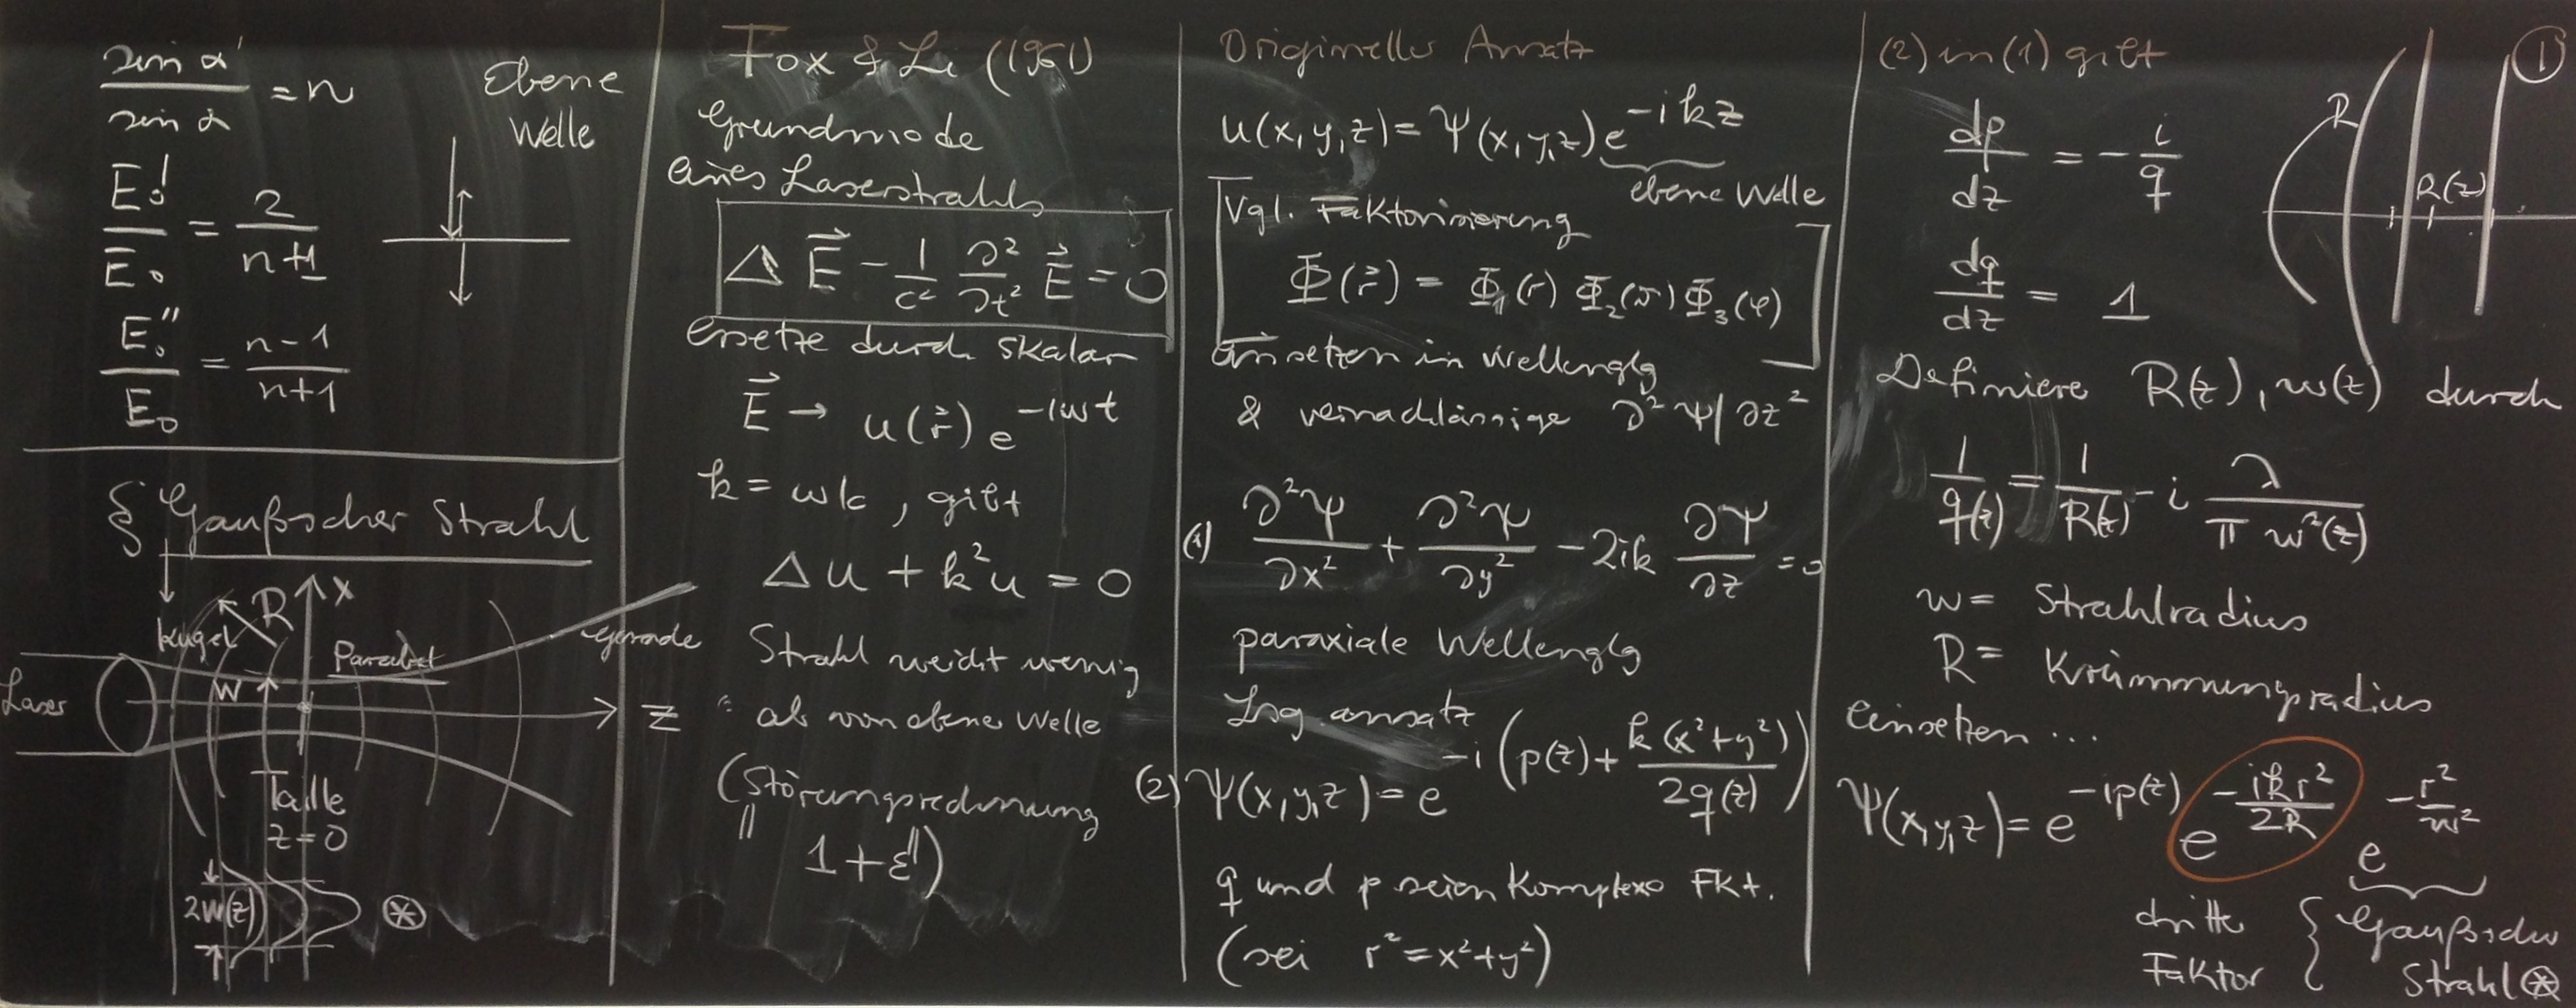 sin α' / sin α = n
Ebene
Welle
E₀' / E₀ = 2 / (n+1)
E₀'' / E₀ = (n-1) / (n+1)
§ Gaußscher Strahl
Kugel
R
x
Parabel
gerade
Laser
w
z
Taille
z=0
2w(z)
⊛
Fox & Li (1961)
Grundmode
eines Laserstrahls
Δ E⃗ - 1/c² ∂²/∂t² E⃗ = 0
ersetze durch skalar
E⃗ → u(r⃗) e^(-iωt)
k = ω/c, gibt
Δu + k²u = 0
Strahl weicht wenig
ab von ebene Welle
(Störungsrechnung
"1+ε")
Origineller Ansatz
u(x,y,z) = Ψ(x,y,z) e^(-ikz)
ebene Welle
Vgl. Faktorisierung
Φ(r⃗) = Φ₁(r) Φ₂(ϑ) Φ₃(φ)
Einsetzen in Wellenglg
& vernachlässige ∂²Ψ/∂z²
(1) ∂²Ψ/∂x² + ∂²Ψ/∂y² - 2ik ∂Ψ/∂z = 0
paraxiale Wellenglg
Lsg. ansatz
(2) Ψ(x,y,z) = e^(-i(p(z) + k(x²+y²)/2q(z)))
q und p seien komplexe Fkt.
(sei r² = x²+y²)
(2) in (1) gibt
①
dp/dz = - i/q
R
R(z)
dq/dz = 1
Definiere R(z), w(z) durch
1/q(z) = 1/R(z) - i λ/(π w²(z))
w = Strahlradius
R = Krümmungsradius
einsetzen ...
Ψ(x,y,z) = e^(-ip(z)) e^(-ikr²/2R) e^(-r²/w²)
dritte { Gaußscher
Faktor { Strahl ⊛